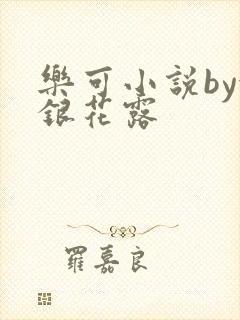 樂可小説by
銀花露
羅嘉良